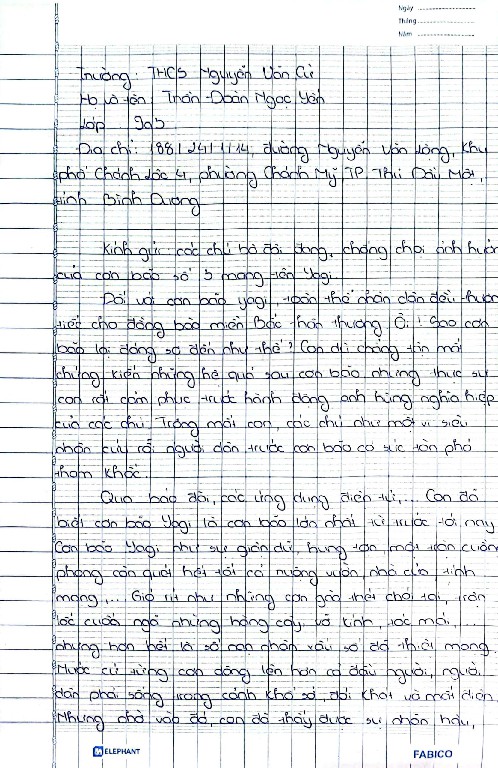 Ngày
Tháng
Năm
Trường: THCS Nguyễn Văn Cừ
Họ và tên: Trần Đoàn Ngọc Yến
Lớp 9a5
Địa chỉ: 188/24/1/14, đường Nguyễn Văn Lồng, Khu
phố Chánh Lộc 4, phường Chánh Mỹ, TP. Thủ Dầu Một,
tỉnh Bình Dương
Kính gửi: các chú bộ đội đang chống chọi ảnh hưởn
của cơn bão số 3 mang tên Yagi.
Đối với cơn bão yagi, toàn thể nhân dân đều thươn
tiếc cho đồng bào miền Bắc thân thương. Ôi! Sao cơn
bão lại đáng sợ đến như thế? Con dù chẳng tận mắt
chứng kiến những hệ quả sau cơn bão nhưng thực sự
con rất cảm phục trước hành động anh hùng nghĩa hiệp
của các chú. Trong mắt con, các chú như một vị siêu
nhân cứu rỗi người dân trước cơn bão có sức tàn phá
thảm khốc.
Qua báo đài, các ứng dụng điện tử,... Con đã
biết cơn bão Yagi là cơn bão lớn nhất từ trước tới nay
Cơn bão Yagi như sự giận dữ, hung tợn, một trận cuồng
phong càn quét hết tất cả ruộng vườn, nhà cửa, tính
mạng,... Gió rít như những cơn gào thét chói tai, trận
lốc cuốn ngã những hàng cây, vỡ kính, tốc mái,...
nhưng hơn hết là số con nhân xấu số đã thiệt mạng.
Nước cứ từng cơn dâng lên hơn cả đầu người, người
dân phải sống trong cảnh khổ sở, đói khát và mất điện.
Nhưng nhờ vào đó, con đã thấy được sự nhân hậu,
ELEPHANT
FABICO